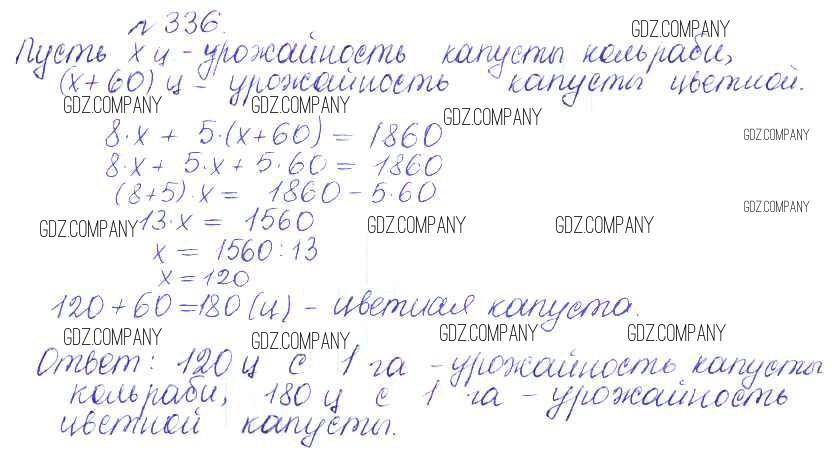 № 336.
GDZ.COMPANY
Пусть x ц - урожайность капусты кольраби,
(x+60) ц - урожайность капусты цветной.
GDZ.COMPANY GDZ.COMPANY GDZ.COMPANY
8·x + 5·(x+60) = 1860 GDZ.COMPANY
8·x + 5·x + 5·60 = 1860
(8+5)·x = 1860 - 5·60
GDZ.COMPANY
GDZ.COMPANY 13·x = 1560 GDZ.COMPANY GDZ.COMPANY
x = 1560:13
x = 120
120+60=180 (ц) - цветная капуста.
GDZ.COMPANY GDZ.COMPANY GDZ.COMPANY GDZ.COMPANY
Ответ: 120 ц с 1 га - урожайность капусты
кольраби, 180 ц с 1 га - урожайность
цветной капусты.